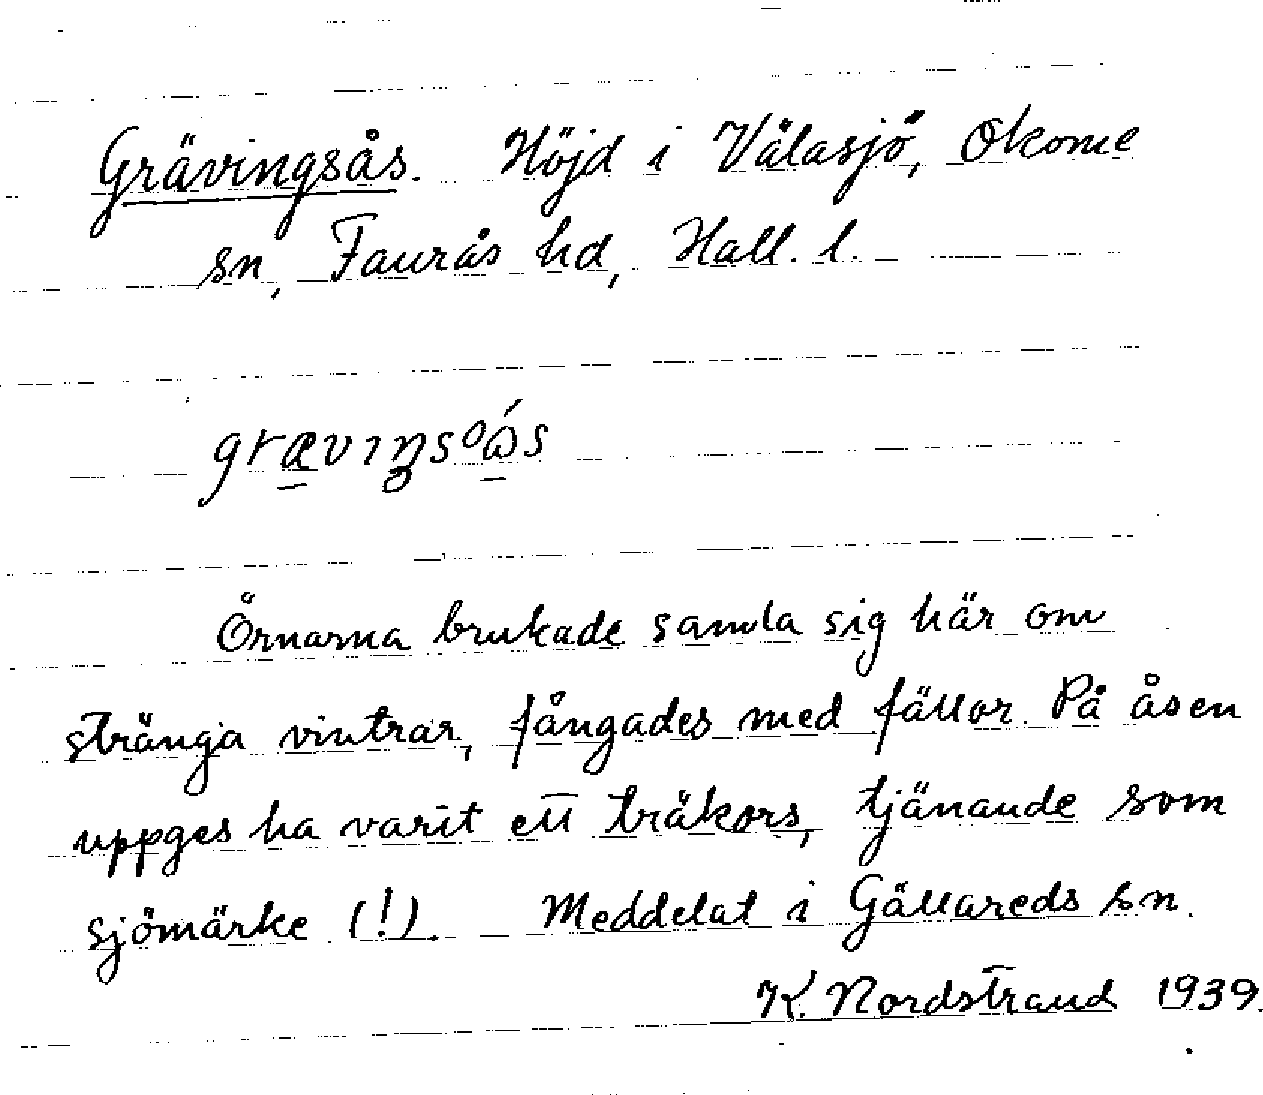 Grävingsås. Höjd i Välasjö, Okome
sn, Faurås hd, Hall. l.
grävıŋsoás
Örnarna brukade samla sig här om
stränga vintrar, fångades med fällor. På åsen
uppges ha varit ett träkors, tjänande som
sjömärke (!). Meddelat i Gällareds sn.
K. Nordstrand 1939.